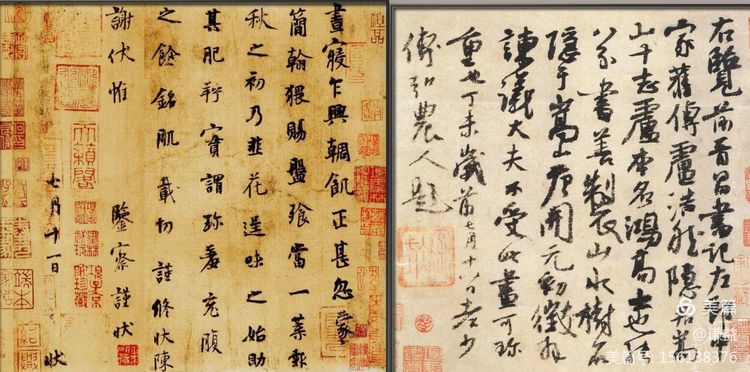 晝寢乍興輖飢正甚忽蒙
簡翰猥賜盤飧當一葉報
秋之初乃韭花逞味之始助
其肥羜實謂珍羞充腹
之餘銘肌載切謹修狀陳
謝伏惟
鑒察謹狀
七月十一日 狀
天籟閣
項子京家珍藏
右覽前晉昌書記左郎中
家舊傳盧浩然隱居嵩
山十志盧本名鴻高士也能
八分書善製山水樹石
隱于嵩山唐開元初徵拜
諫議大夫不受此畫可珍
重也丁未歲前七月十八日老少
傅弘農人題
美篇
@谦益
美篇号: 156138376